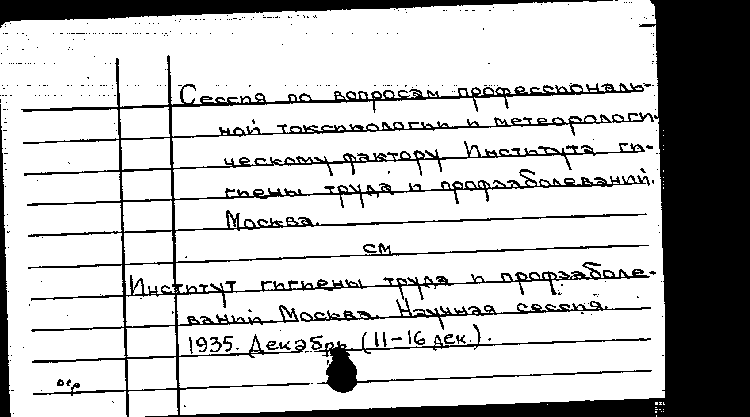 Сессия по вопросам профессиональ-
ной токсикологии и метеорологи-
ческому фактору Института ги-
гиены труда и профзаболеваний.
Москва.
см
Институт гигиены труда и профзаболе-
ваний Москва. Научная сессия.
1935. Декабрь (11-16 дек.).